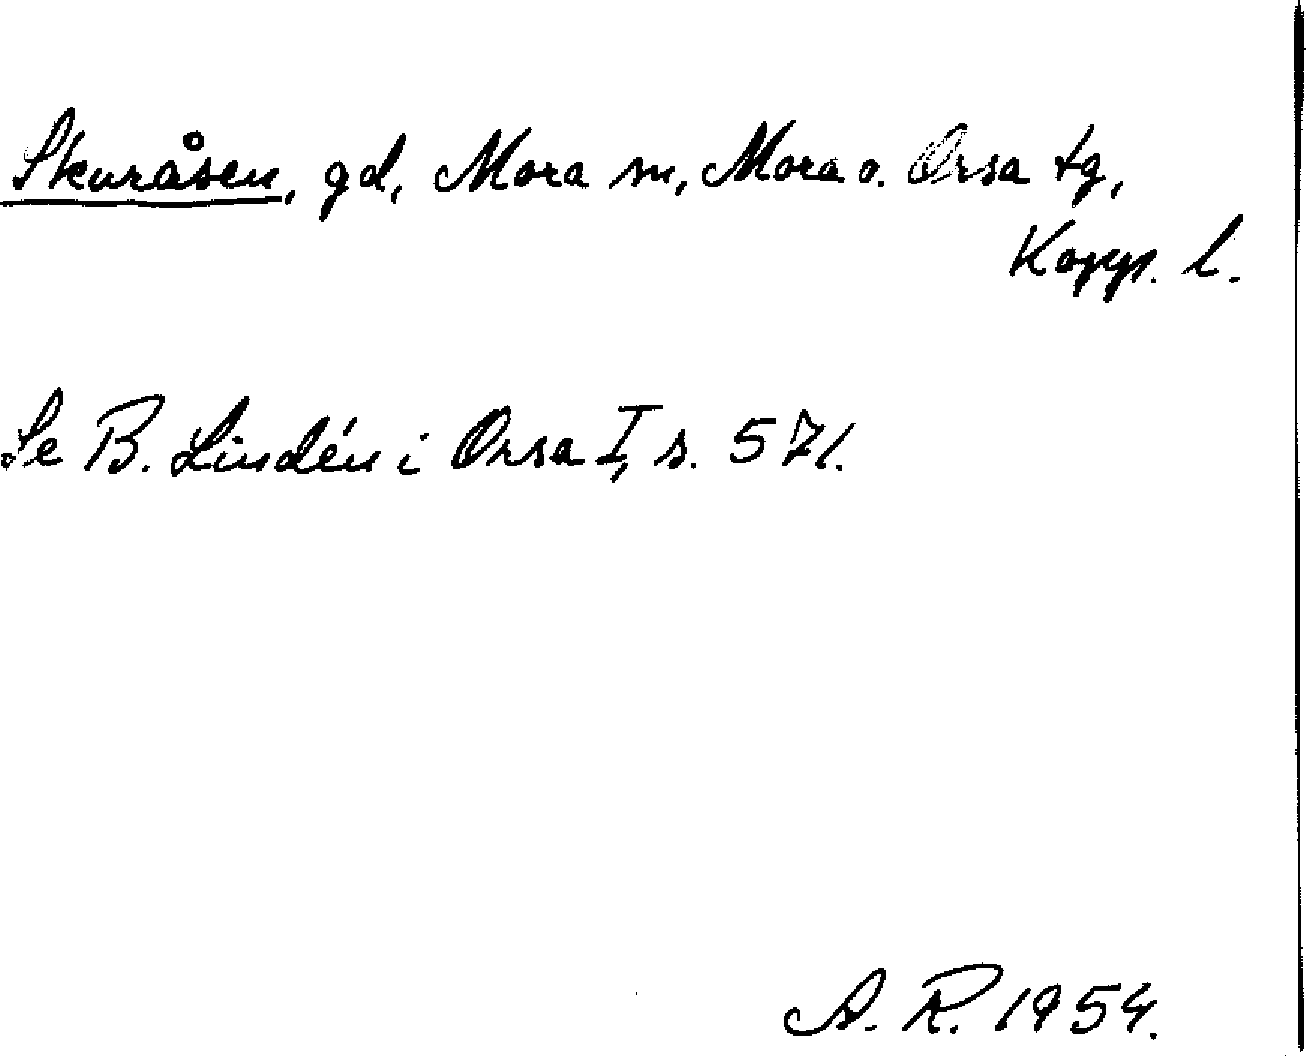 Skuråsen, gd, Mora sn, Mora o. Orsa tg,
Kopp. l.
Se B. Lindén i Orsa I, s. 571.
A. R. 1954.